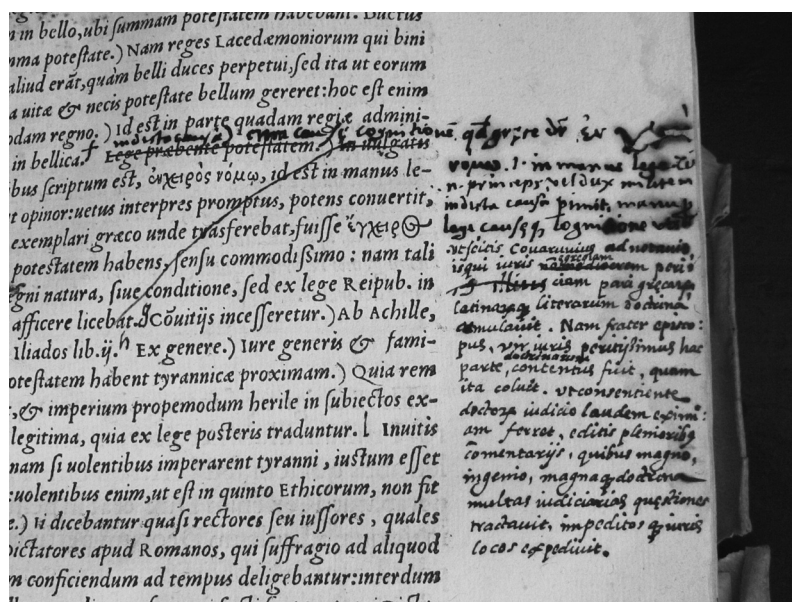 in bello, ubi ſummam poteſtatem habebant. Ductus
poteſtate.) Nam reges Lacedæmoniorum qui bini
aliud erāt, quàm belli duces perpetui, ſed ita ut eorum
uitæ & necis poteſtate bellum gereret: hoc eſt enim
regno.) Id eſt in parte quadam regiæ admini-
in bellica. Lege præbente poteſtatem.) In uulgatis
indicta causa) causę cognitione
ſcriptum eſt, ἐνχειρὸς νόμῳ, id eſt in manus le-
opinor: uetus interpres promptus, potens conuertit,
exemplari græco unde trāsferebat, fuiſſe ἔγχειρος
poteſtatem habens, ſenſu commodiſſimo: nam tali
natura, ſiue conditione, ſed ex lege Reipub. in
afficere licebat. Cōuitijs inceſſeretur.) Ab Achille,
Iliados lib. ij. Ex genere.) Iure generis & fami-
poteſtatem habent tyrannicæ proximam.) Quia rem
& imperium propemodum herile in ſubiectos ex-
legitima, quia ex lege poſteris traduntur. Inuitis
nam ſi uolentibus imperarent tyranni, iuſtum eſſet
uolentibus enim, ut eſt in quinto Ethicorum, non fit
Ii dicebantur quaſi rectores ſeu iuſſores, quales
Dictatores apud Romanos, qui ſuffragio ad aliquod
conficiendum ad tempus deligebantur: interdum
in manus lege
princeps vel dux militem
indicta causa punit, manu
lege causę cognitione
vt scitis Couaruuius ad
is qui iuris
ciam pari græcarum
latinarumq literarum doctrina
æmulauit. Nam frater episco-
pus, vir iuris peritissimus hac
doctrinarum
parte, contentus fuit, quam
ita coluit. vt consentiente
doctorum iudicio laudem eximi-
am ferret, editis plenarijs
cōmentarijs, quibus magno,
ingenio, magnaq doctrina
multas iudiciarias quęstiones
tractauit, impeditosq iuris
locos expediuit.